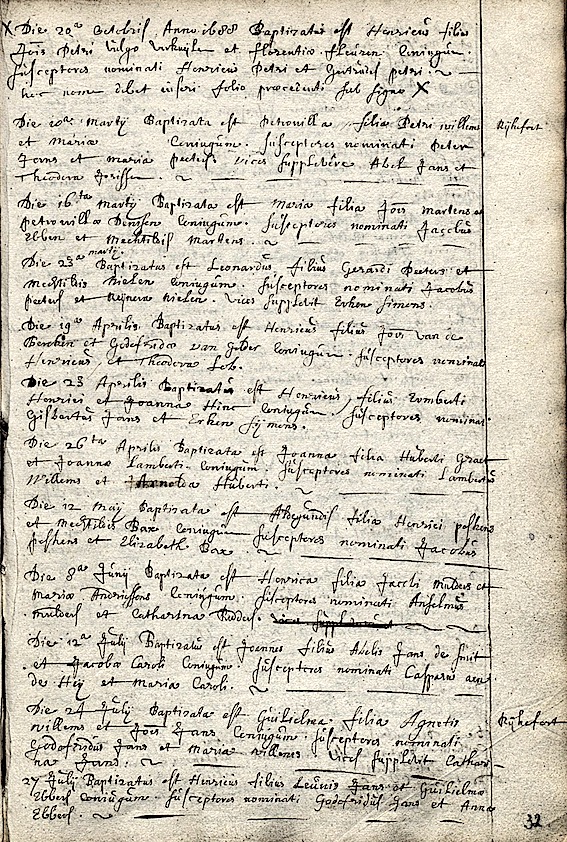 X Die 20a Octobris Anno 1688 Baptizatus est Henricus filius
Jois Petri vulgo et Florentiæ Fleuren Coniugum.
Susceptores nominati Henricus Petri et Gertrudis Petri.
hoc nomen debet inseri folio præcedenti sub signo X
Die 10a Martij Baptizata est Petronilla filia Petri Willems Rijkefort
et Mariæ Coniugum. Susceptores nominati Peter
Jans et Maria Peeters vices supplevere Abel Jans et
Theodora Jorissen.
Die 16ta Martij Baptizata est Maria filia Jois Martens et
Petronillæ Denssen Coniugum. Susceptores nominati Jacobus
Ebben et Mechtildis Martens.
Die 23a martij Baptizatus est Leonardus filius Gerardi Peeters et
Mechtildis Nielen Coniugum. Susceptores nominati Jacobus
Peeters et Reynera Nielen. Vices supplevit Erken Simons.
Die 19a Aprilis Baptizatus est Henricus filius Jois van de
Bercken et Godefridæ van Coniugum. Susceptores nominati
Henricus et Theodora
Die 23 Aprilis Baptizatus est Henricus filius Rumberti
Henrici et Joanna Coniugum. Susceptores nominati
Gisbertus Jans et Erken Sijmons.
Die 26ta Aprilis Baptizata est Joanna filia Huberti
et Joannæ Lamberti Coniugum. Susceptores nominati Lambertus
Willems et Arnolda Huberti.
Die 12 Maij Baptizata est Aldegundis filia Henrici Peskens
et Mechtildis Bax Coniugum Susceptores nominati Jacobus
Peskens et Elizabeth Bax.
Die 8a Junij Baptizata est Henrica filia Jacobi Mulders et
Mariæ Andriessens Coniugum. Susceptores nominati Anselmus
Mulders et Catharina Ridders.
Die 12a Julij Baptizatus est Joannes filius Abelis Jans de Smit
et Jacoba Caroli Coniugum. Susceptores nominati Casparus
de Heij et Maria Caroli.
Die 24 Julij Baptizata est Guilielma filia Agnetis Rijkefort
Willems et Jois Jans Coniugum. Susceptores nominati
Godefridus Jans et Maria Willems Vices supplevit Cathari
na Jans.
27 Julij Baptizatus est Henricus filius Leunis Jans et Guilielmæ
Ebbers Coniugum Susceptores nominati Godefridus Jans et Anna
Ebbers.
32